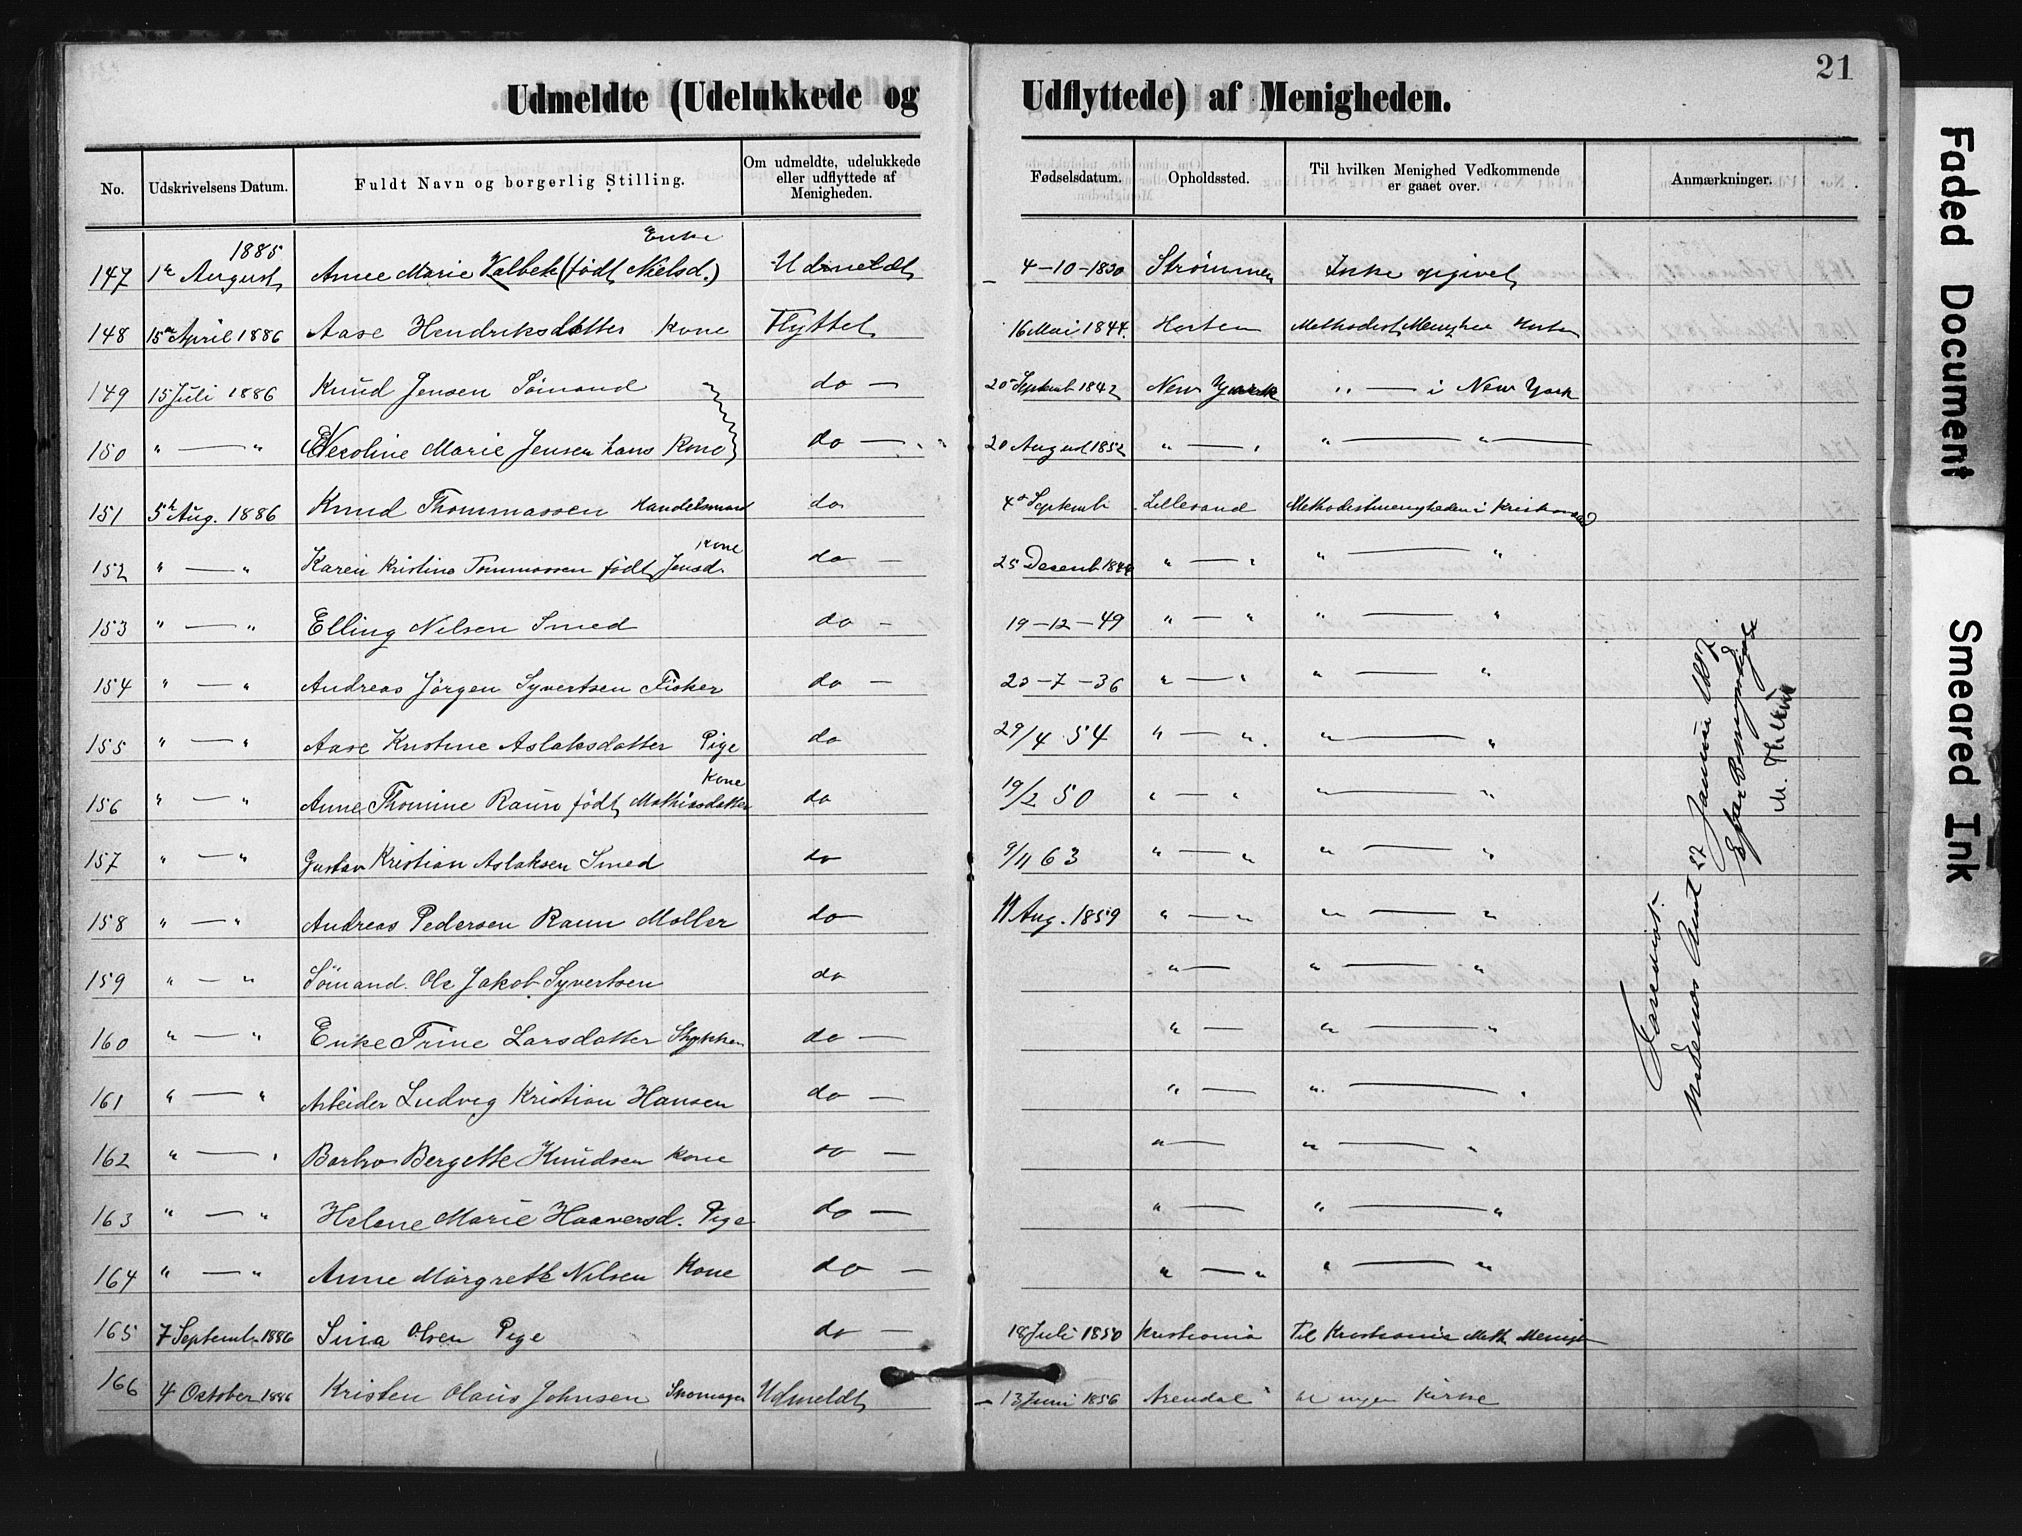 21
Udmeldte (Udelukkede og Udflyttede) af Menigheden.
No. Udskrivelsens Datum. Fuldt Navn og borgerlig Stilling. Om udmeldte, udelukkede eller udflyttede af Menigheden. Fødselsdatum. Opholdssted. Til hvilken Menighed Vedkommende er gaaet over. Anmærkninger.
1885 Enke
147 1ste August Anne Marie Valbek (født Nielsd.) Udmeldt 4-10-1830 Strømmen Inke opgivet
148 15de April 1886 Aase Hendriksdatter Kone Flyttet 16 Mai 1844. Horten Methodist Menghee Horten
149 15 Juli 1886 Knud Jensen Sömand do — 20 Septemb 1842 New York " — i New York
150 " — " Nicoline Marie Jensen hans Kone do — " 20 August 1852 " — " " — " —
151 5te Aug. 1886 Knud Thommassen Handelsmand do 4de Septemb Lillesand Methodistmenigheden i Kristiansand
Kone
152 " — " Karen Kristine Tommassen født Jensd. do — 25 Desemb 1844 " — " " — "
153 " — " Elling Nilsen Smed do - 19-12-49 " — " " — "
154 " — " Andreas Jörgen Syvertsen Fisker do — 23-7-36 " — " " — "
155 " — " Aase Kristine Aslaksdatter Pige do 29/4 54 " — " " — "
Kone
156 " — " Anne Thomine Raun født Mathiasdatter do 19/2 50 " — " " — "
157 " — " Gustav Kristian Aslaksen Smed do 9/11 63 " — " " — "
158 " — " Andreas Pedersen Raun Møller do — 11 Aug. 1859 " — " " — "
159 " — " Sömand. Ole Jakob Syvertsen do " — " — "
160 " — " Enke Trine Larsdatter do — " — " — "
161 " — " Arbeider Ludvig Kristian Hansen do — " — " — "
162 " — " Barbro Bergette Knudsen Kone do — " — " — "
163 " — " Helene Marie Haaversd. Pige do — " — " — "
164 " — " Anne Margrethe Nilsen Kone do — " — " " — "
165 7 Septemb 1886 Sina Olsen Pige do — 18 Juli 1850 Kristiania Til Kristiania Meth Menigh
166 4 October 1886 Kristen Olaus Johnsen Skomager Udmeldt 13 Juni 1856 Arendal til ingen Kirke
Forevist.
Nedenes Amt 27 Januar 1887
Efter Bemyndigelse
Faded Document
Smeared Ink